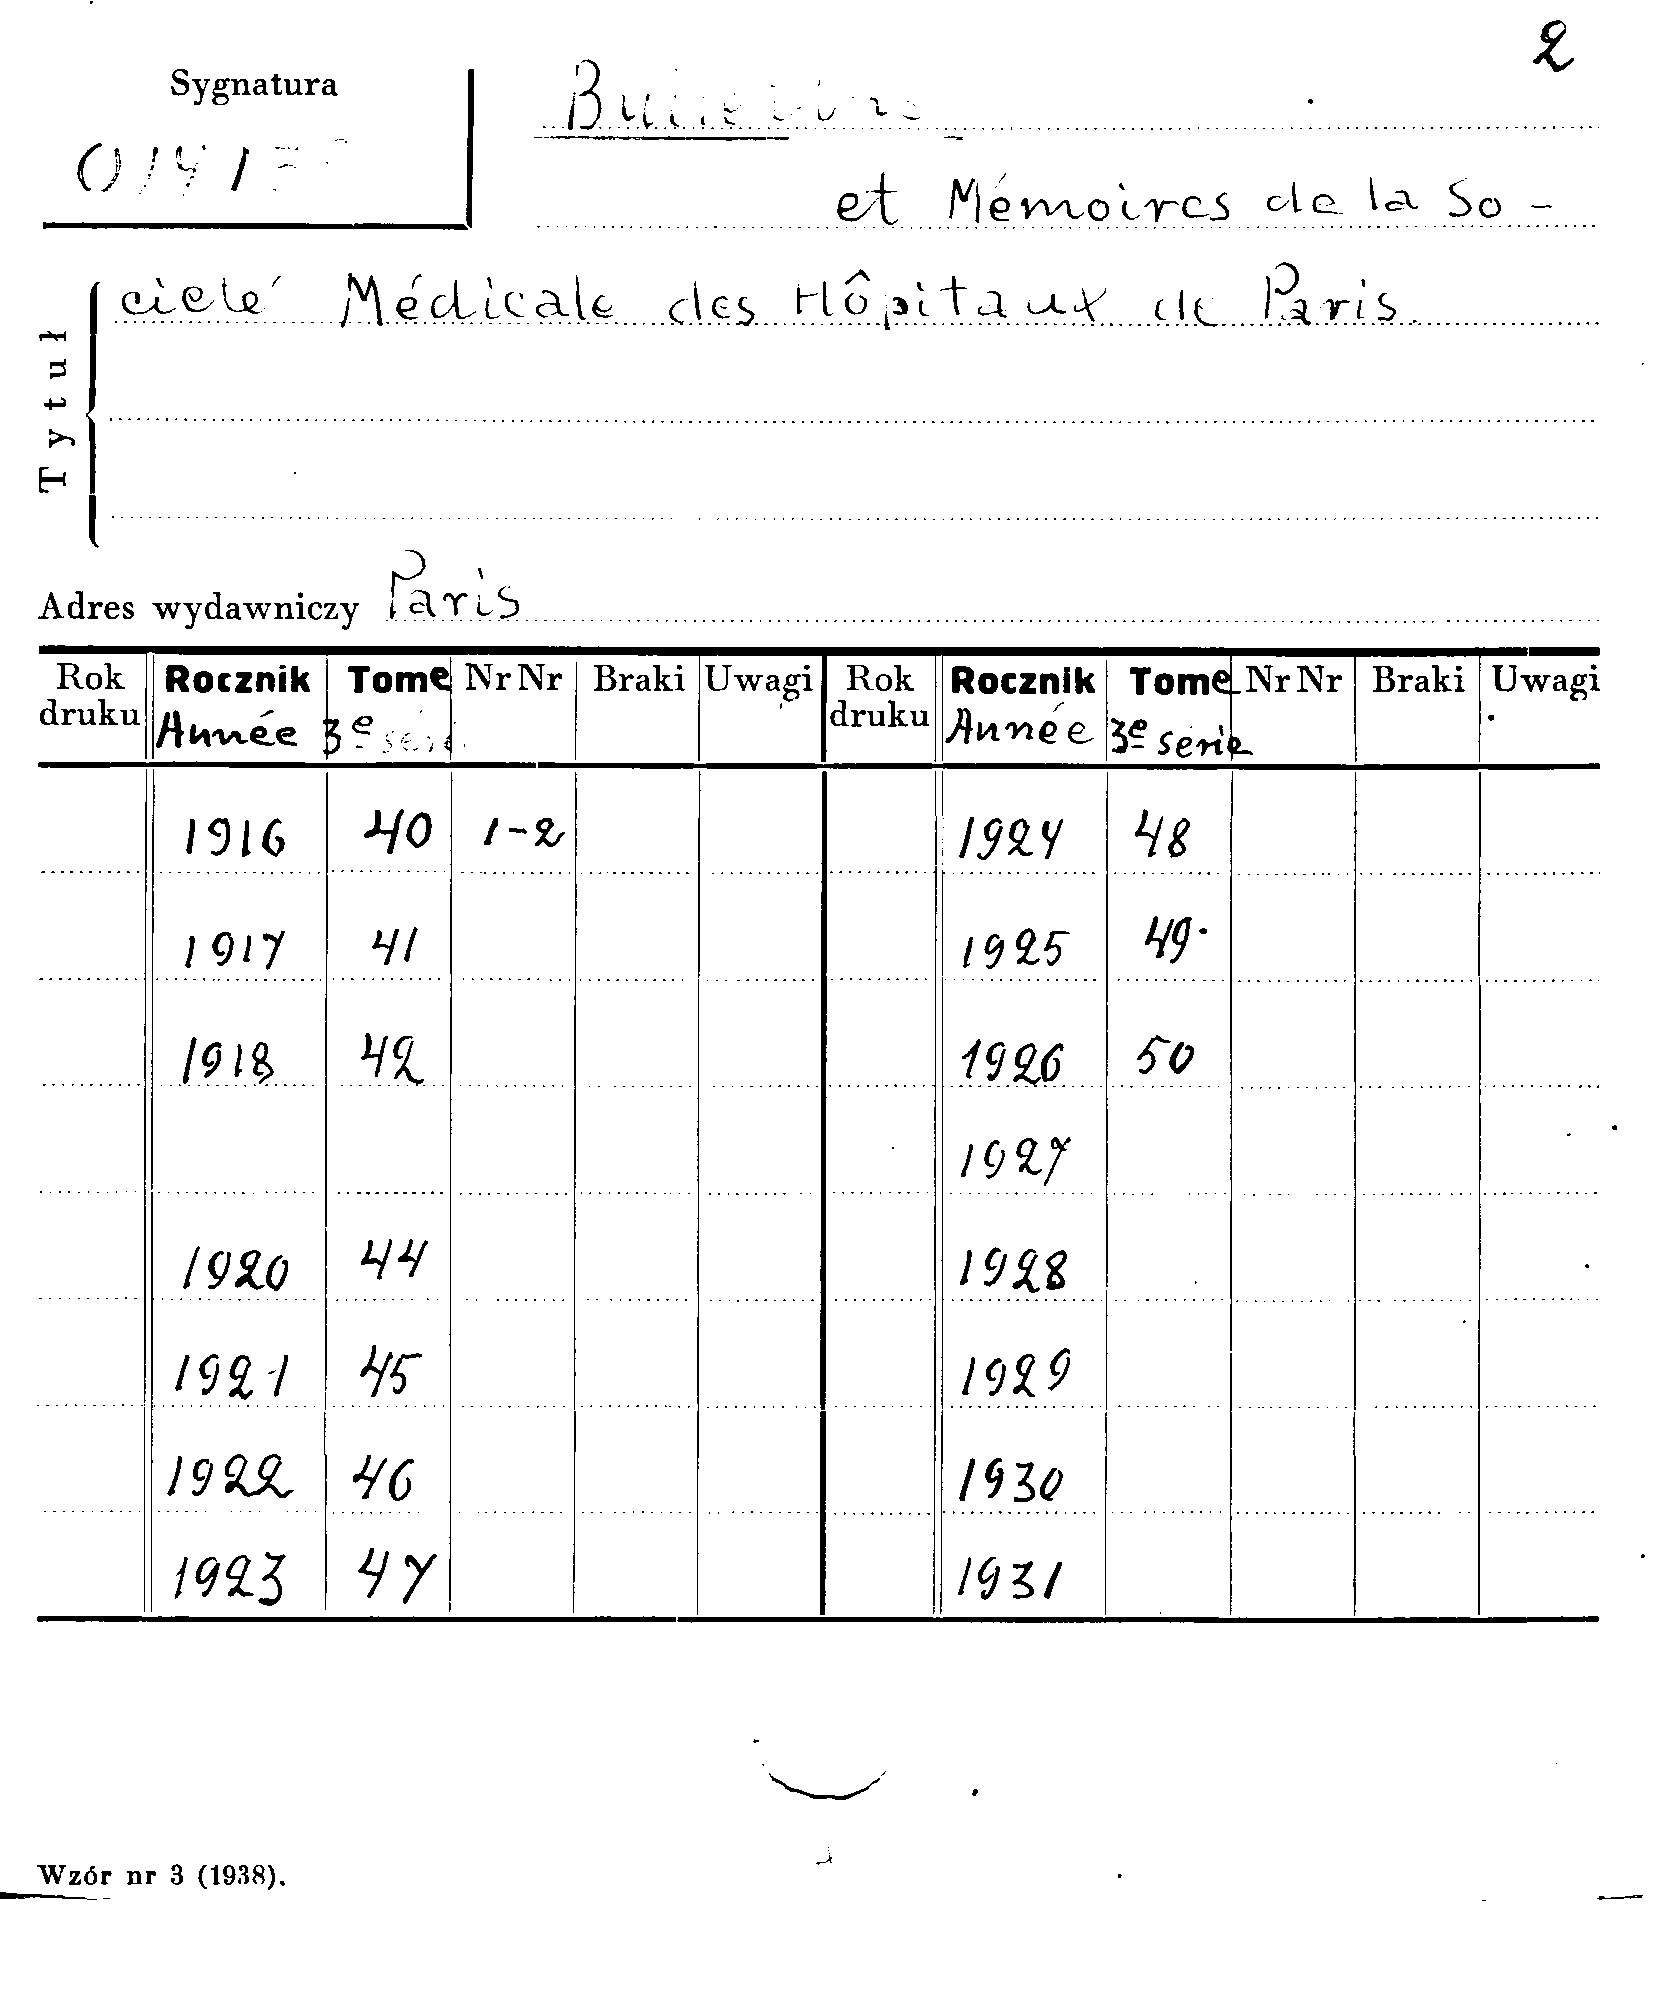 2
Sygnatura
et Mémoires de la So-
Tytuł
cieté Médicale des Hôpitaux de Paris.
Adres wydawniczy Paris
Rok druku Rocznik Tome Nr Nr Braki Uwagi Rok druku Rocznik Tome Nr Nr Braki Uwagi
Année 3e serie Année 3e serie
1916 40 1-2 1924 48
1917 41 1925 49
1918 42 1926 50
1927
1920 44 1928
1921 45 1929
1922 46 1930
1923 47 1931
Wzór nr 3 (1938).